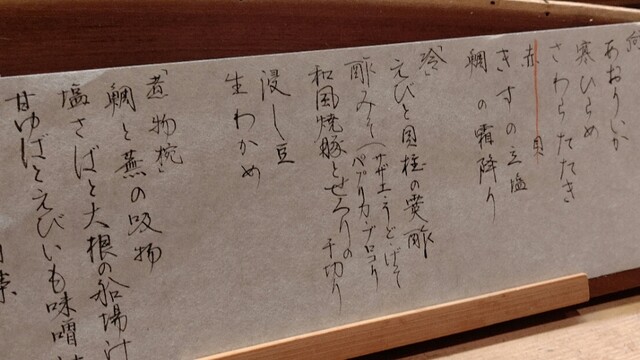 向
あおりいか
寒ひらめ
さわらたたき
赤貝
きすの立塩
鯛の霜降り
「冷」
えびと貝柱の黄酢
酢みそ(サザエ・うど・げそ
パプリカ・ブロッコリ
和風焼豚とせろりの千切り
浸し豆
生わかめ
「煮物椀」
鯛と蕪の吸物
塩さばと大根の船場汁
甘ゆばとえびいも味噌